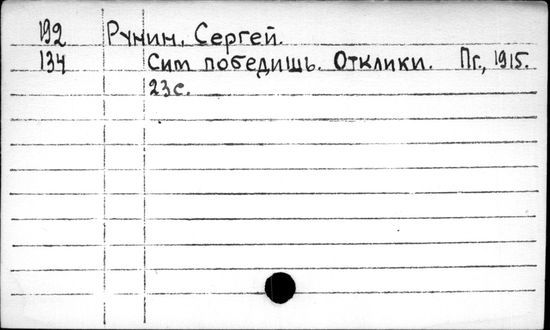 192 Рунин, Сергей.
134 Сим победишь. Отклики. Пг., 1915.
23с.